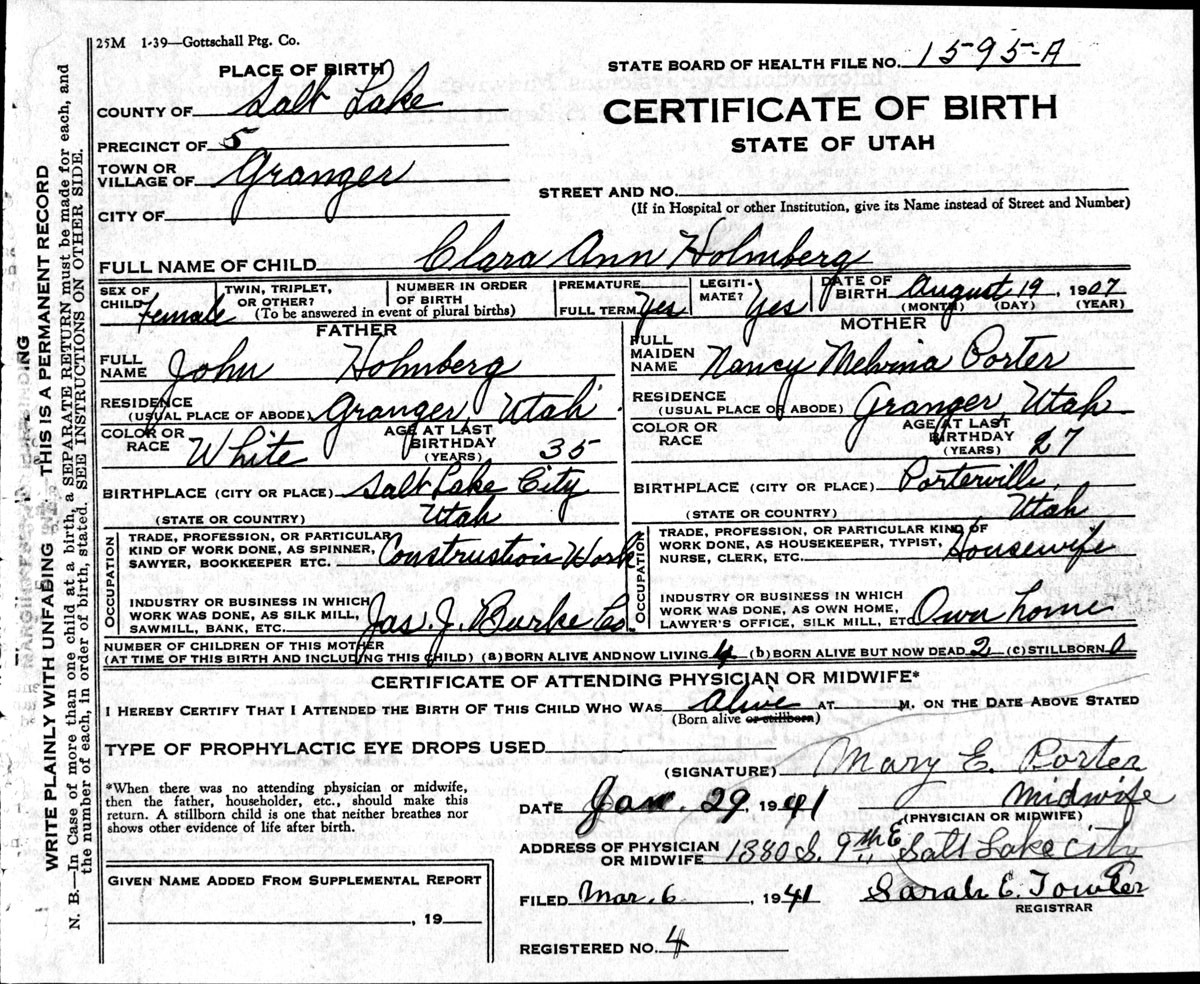 25M 1-39—Gottschall Ptg. Co.
STATE BOARD OF HEALTH FILE NO. 1595-A
PLACE OF BIRTH
COUNTY OF Salt Lake
CERTIFICATE OF BIRTH
PRECINCT OF 5
STATE OF UTAH
TOWN OR
VILLAGE OF Granger
STREET AND NO.
CITY OF
(If in Hospital or other Institution, give its Name instead of Street and Number)
FULL NAME OF CHILD Clara Ann Holmberg
SEX OF CHILD Female
TWIN, TRIPLET, OR OTHER?
NUMBER IN ORDER OF BIRTH
(To be answered in event of plural births)
PREMATURE
FULL TERM Yes
LEGITI-MATE? Yes
DATE OF BIRTH August 19, 1907
(MONTH) (DAY) (YEAR)
FATHER
FULL NAME John Holmberg
RESIDENCE
(USUAL PLACE OF ABODE) Granger, Utah
COLOR OR RACE White
AGE AT LAST BIRTHDAY (YEARS) 35
BIRTHPLACE (CITY OR PLACE) Salt Lake City
(STATE OR COUNTRY) Utah
OCCUPATION
TRADE, PROFESSION, OR PARTICULAR
KIND OF WORK DONE, AS SPINNER,
SAWYER, BOOKKEEPER ETC. Construstion Work
INDUSTRY OR BUSINESS IN WHICH
WORK WAS DONE, AS SILK MILL,
SAWMILL, BANK, ETC. Jas. J. Burke Co.
MOTHER
FULL MAIDEN NAME Nancy Melvina Porter
RESIDENCE
(USUAL PLACE OF ABODE) Granger, Utah
COLOR OR RACE
AGE AT LAST BIRTHDAY (YEARS) 27
BIRTHPLACE (CITY OR PLACE) Porterville,
(STATE OR COUNTRY) Utah
OCCUPATION
TRADE, PROFESSION, OR PARTICULAR KIND OF
WORK DONE, AS HOUSEKEEPER, TYPIST,
NURSE, CLERK, ETC. Housewife
INDUSTRY OR BUSINESS IN WHICH
WORK WAS DONE, AS OWN HOME,
LAWYER'S OFFICE, SILK MILL, ETC Own home
NUMBER OF CHILDREN OF THIS MOTHER
(AT TIME OF THIS BIRTH AND INCLUDING THIS CHILD) (a) BORN ALIVE AND NOW LIVING 4 (b) BORN ALIVE BUT NOW DEAD 2 (c) STILLBORN 0
CERTIFICATE OF ATTENDING PHYSICIAN OR MIDWIFE*
I HEREBY CERTIFY THAT I ATTENDED THE BIRTH OF THIS CHILD WHO WAS Alive AT M. ON THE DATE ABOVE STATED
(Born alive or stillborn)
TYPE OF PROPHYLACTIC EYE DROPS USED
(SIGNATURE) Mary E. Porter
*When there was no attending physician or midwife,
then the father, householder, etc., should make this
return. A stillborn child is one that neither breathes nor
shows other evidence of life after birth.
DATE Jan. 29, 1941 Midwife
(PHYSICIAN OR MIDWIFE)
ADDRESS OF PHYSICIAN
OR MIDWIFE 1380 S. 9th E. Salt Lake City
GIVEN NAME ADDED FROM SUPPLEMENTAL REPORT
, 19
FILED Mar. 6, 1941 Sarah E. Towler
REGISTRAR
REGISTERED NO. 4
WRITE PLAINLY WITH UNFADING THIS IS A PERMANENT RECORD
N. B.—In Case of more than one child at a birth, a SEPARATE RETURN must be made for each, and
the number of each, in order of birth, stated. SEE INSTRUCTIONS ON OTHER SIDE.